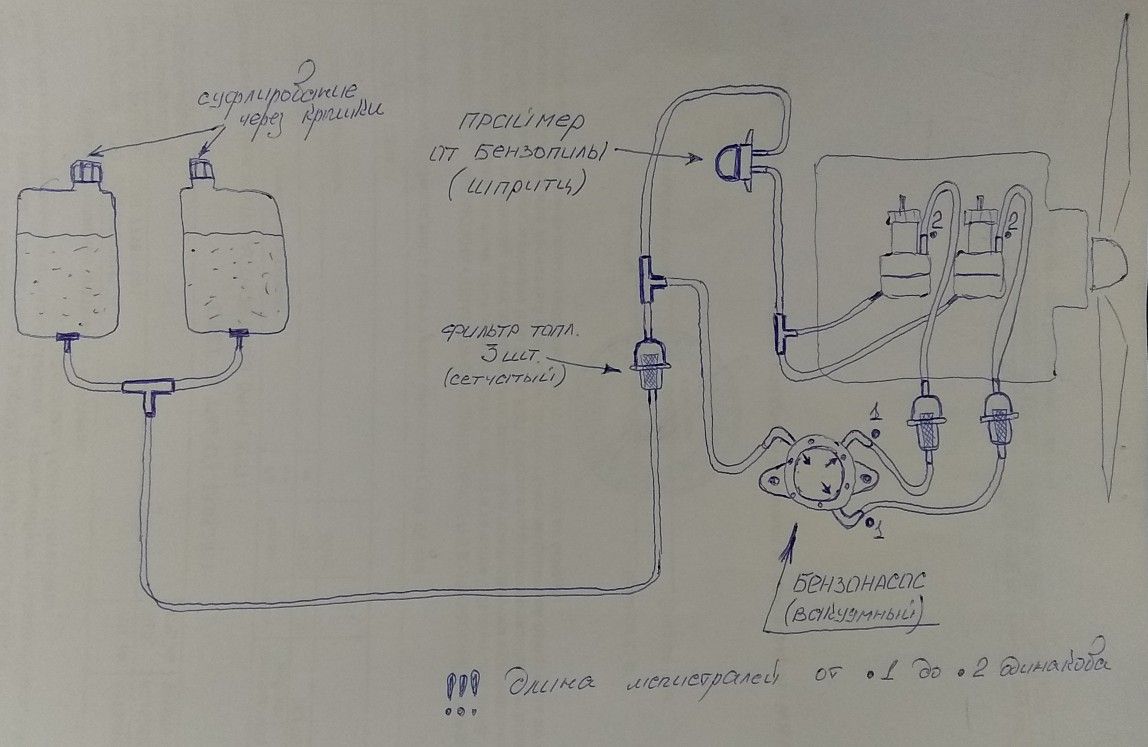 суфлирование
через крышки
праймер
от бензопилы
(шпритц)
2
2
фильтр топл.
3 шт.
(сетчатый)
1
1
бензонасос
(вакуумный)
!!! Длина магистралей от .1 до .2 одинакова